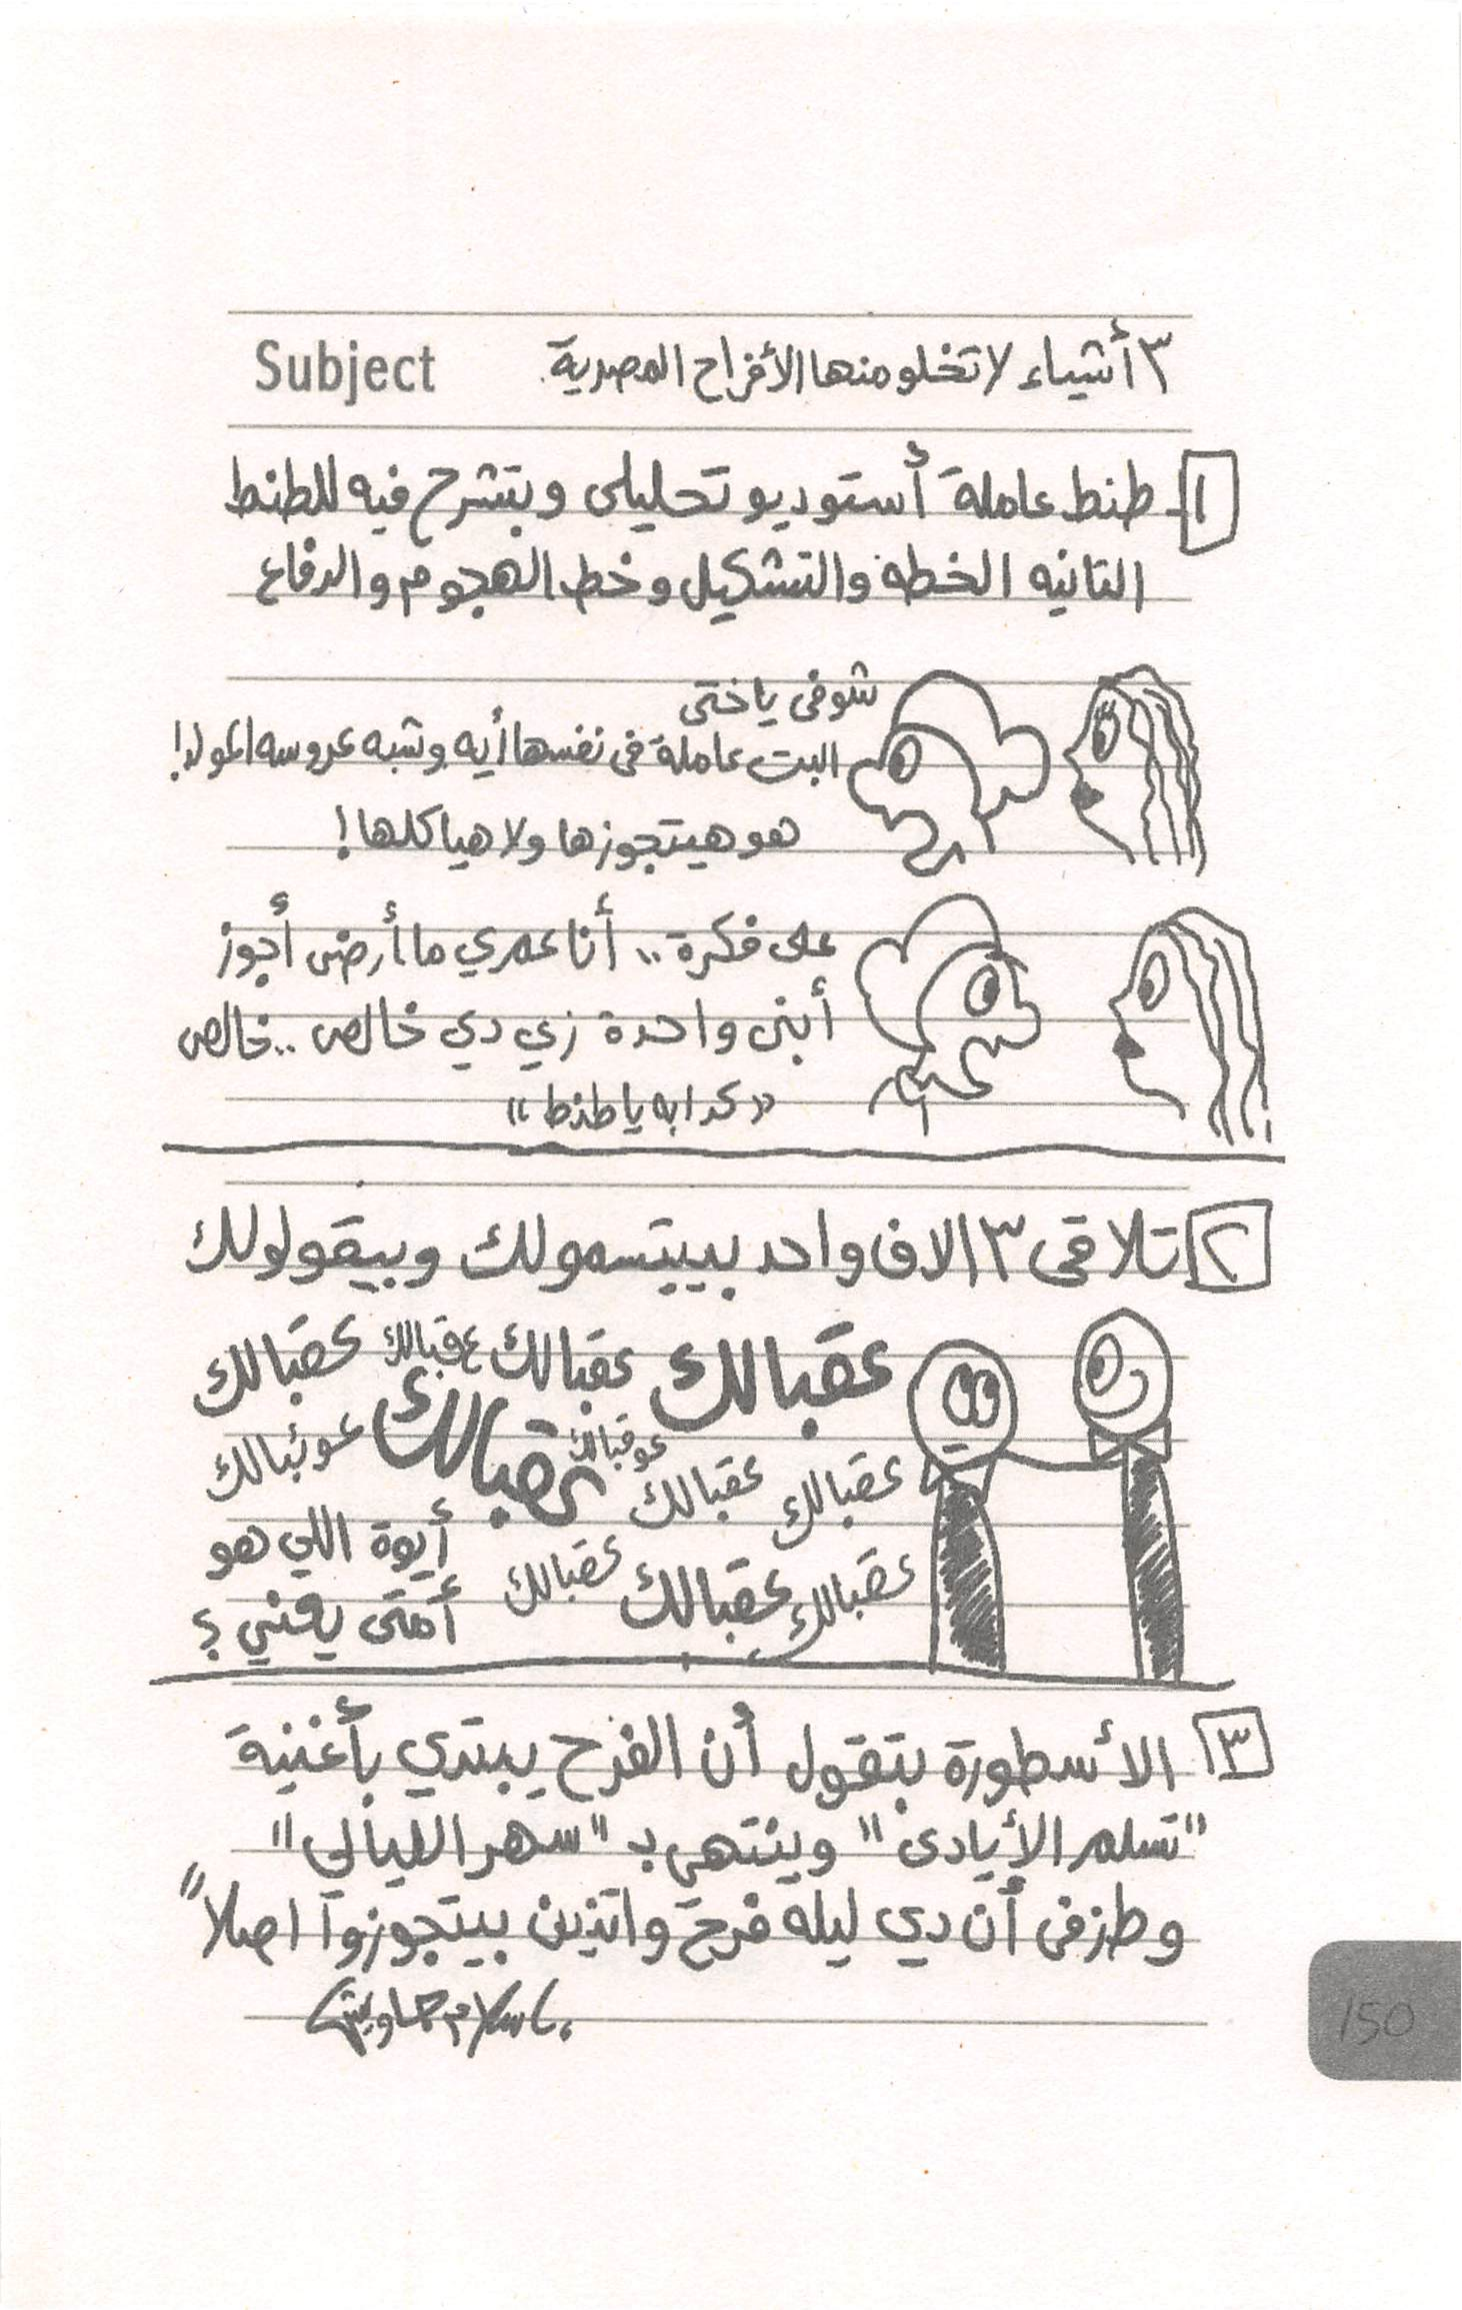 Subject ٣ أشياء لا تخلو منها الأفراح المصرية.
١- طنط عاملة أستوديو تحليلى وبتشرح فيه للطنط
التانيه الخطه والتشكيل وخط الهجوم والدفاع
شوفى ياختى
البت عاملة فى نفسها أيه وشبه عروسه المولد!
هو هيتجوزها ولا هياكلها!
على فكرة .. أنا عمري ما أرضى أجوز
أبنى واحدة زي دي خالص .. خالص
«كدابه يا طنط»
٢ تلاقى ٣ الاف واحد بيبتسمولك وبيقولولك
عقبالك عقبالك عقبالك عقبالك
عقبالك عوقبالك عوئبالك
عقبالك عقبالك
أيوة اللي هو
عقبالك عقبالك عقبالك
أمتى يعني؟
٣ الأسطورة بتقول أن الفرح يبتدي بأغنية
"تسلم الأيادى" وينتهي بـ "سهر الليالي"
وطز فى أن دي ليلة فرح واتنين بيتجوزوا اصلاً"
إسلام جاويش
150